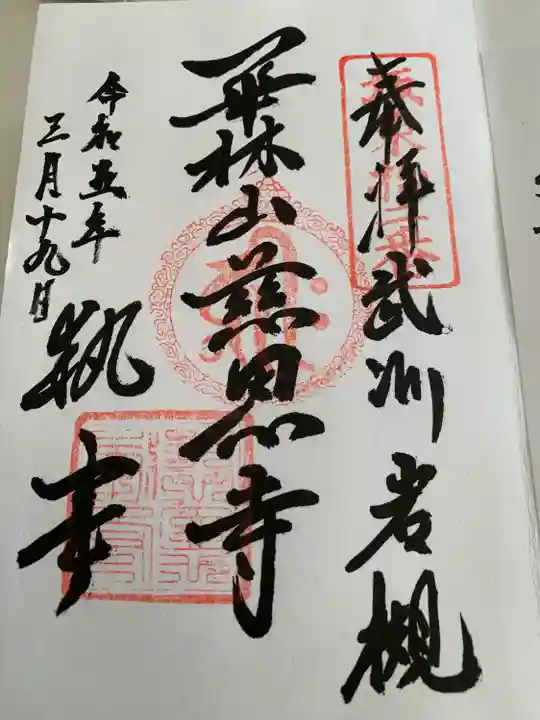 奉拝 武州岩槻
華林山慈恩寺
令和五年
三月十九日
執事